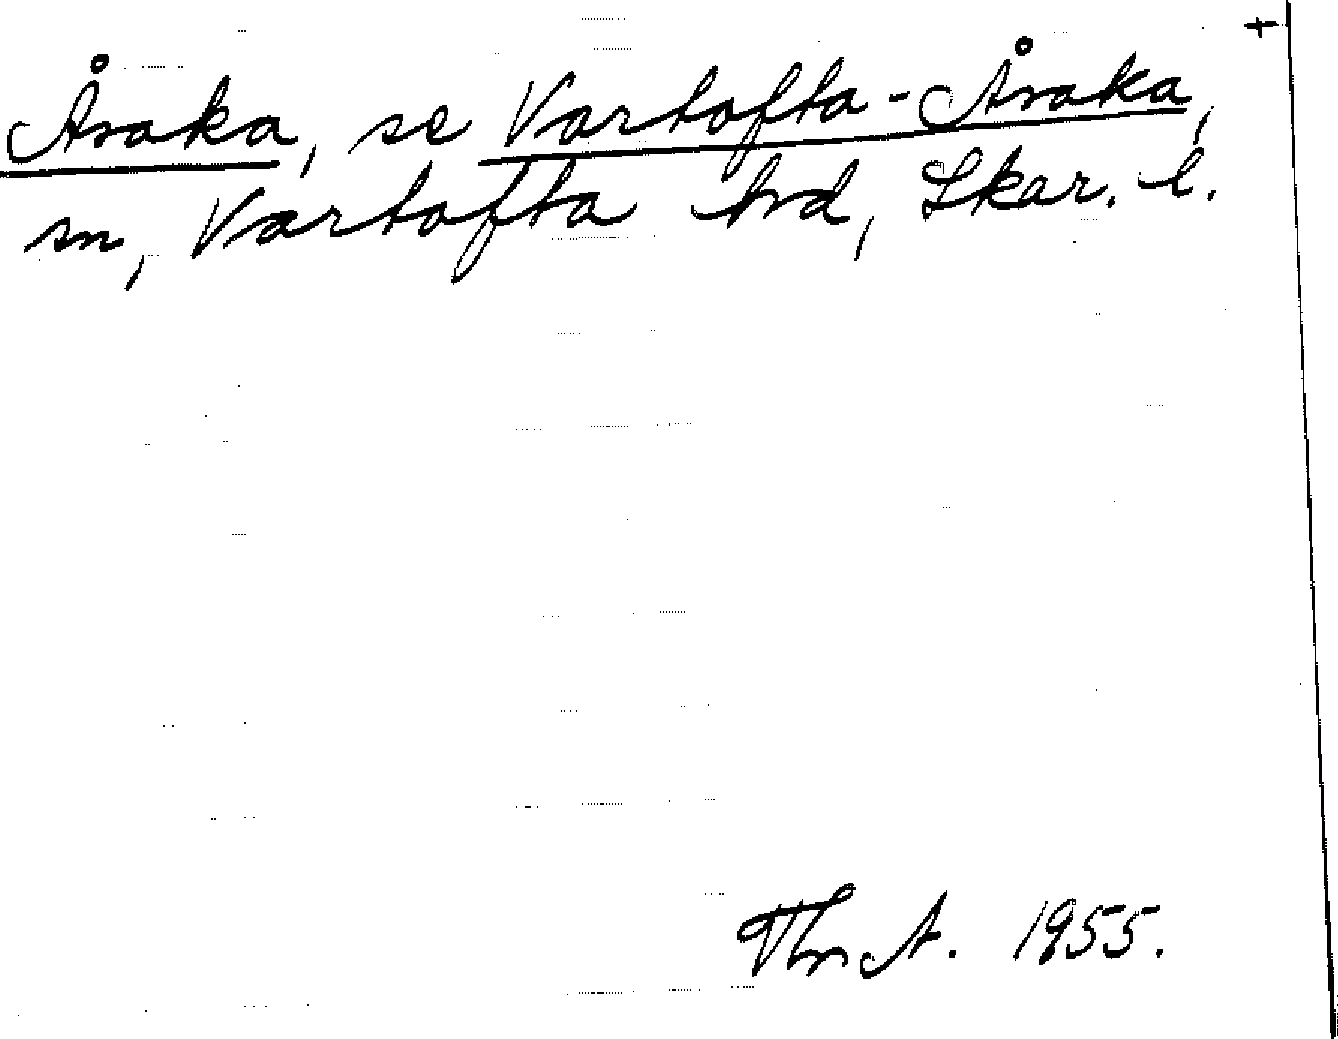 +
Åsaka, se Vartofta-Åsaka,
sn, Vartofta hd, Skar. l.
Thr A. 1955.